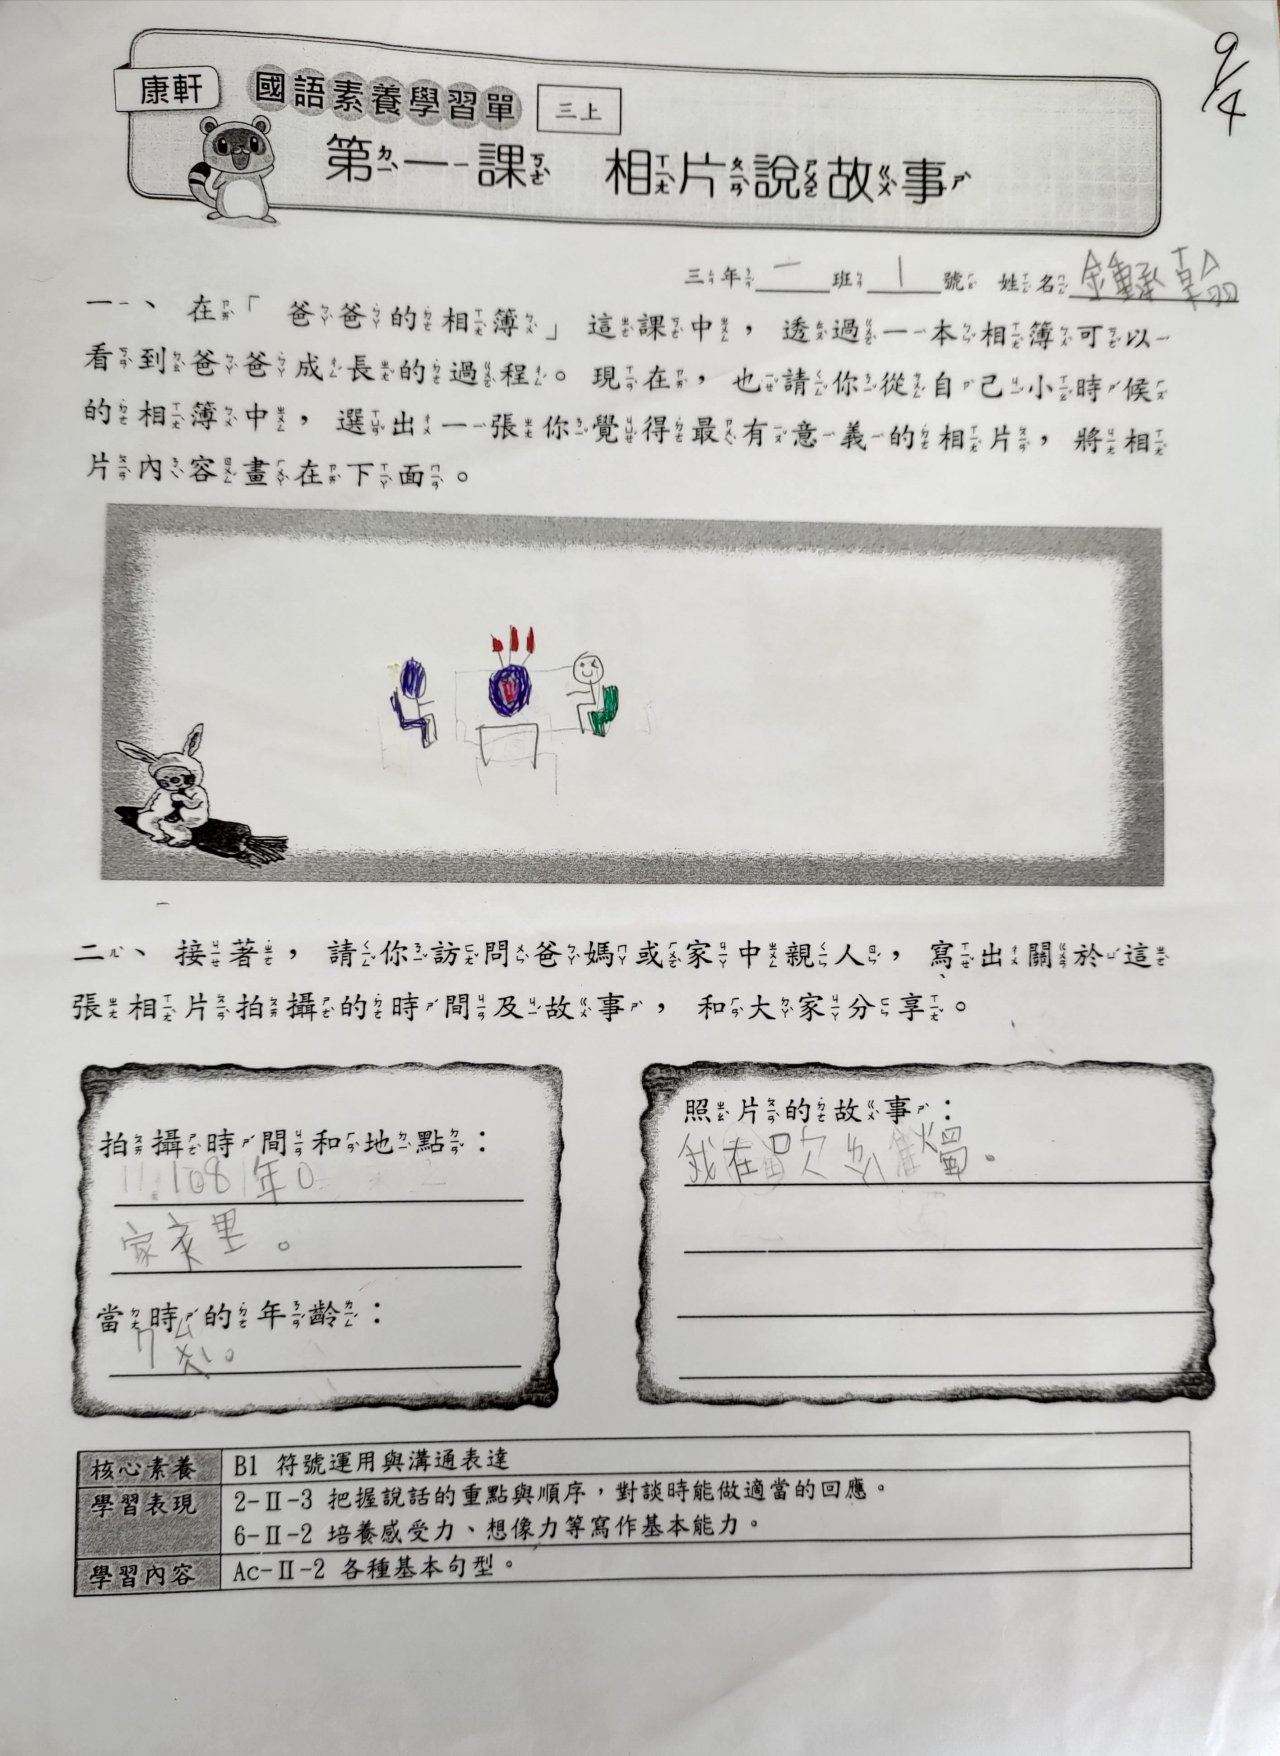 9/4
康軒 國語素養學習單 三上
第一課 相片說故事
三年 一 班 1 號 姓名 鍾承翰
一、在「爸爸的相簿」這課中，透過一本相簿可以
看到爸爸成長的過程。現在，也請你從自己小時候
的相簿中，選出一張你覺得最有意義的相片，將相
片內容畫在下面。
二、接著，請你訪問爸媽或家中親人，寫出關於這
張相片拍攝的時間及故事，和大家分享。
拍攝時間和地點：
108年
家裡。
當時的年齡：
7
照片的故事：
我在吹 蠟燭。
核心素養 B1 符號運用與溝通表達
學習表現 2-Ⅱ-3 把握說話的重點與順序，對談時能做適當的回應。
6-Ⅱ-2 培養感受力、想像力等寫作基本能力。
學習內容 Ac-Ⅱ-2 各種基本句型。